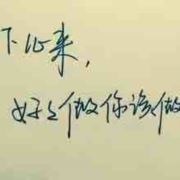 下心来,
好々做你该做